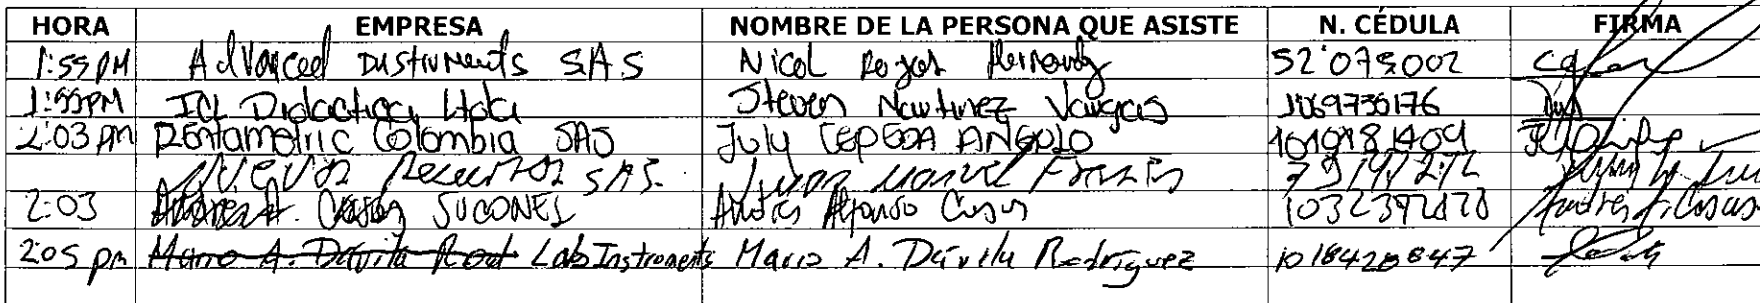 HORA EMPRESA NOMBRE DE LA PERSONA QUE ASISTE N. CÉDULA FIRMA
1:55 PM Advanced Instruments SAS Nicol Rojas 52'075002
1:55PM ICL Didactica Ltda Steven Martinez Vargas 1069730176
2:03 pm Rentametric Colombia SAS July CEPEDA ANGULO
Nuevos Recursos SAS. Juan Manuel
2:03 SUCONEL Andres Alfonso Casas
2:05 pm Mario A. Davila Rod Lab Instruments Mario A. Dávila Rodríguez 1018428847